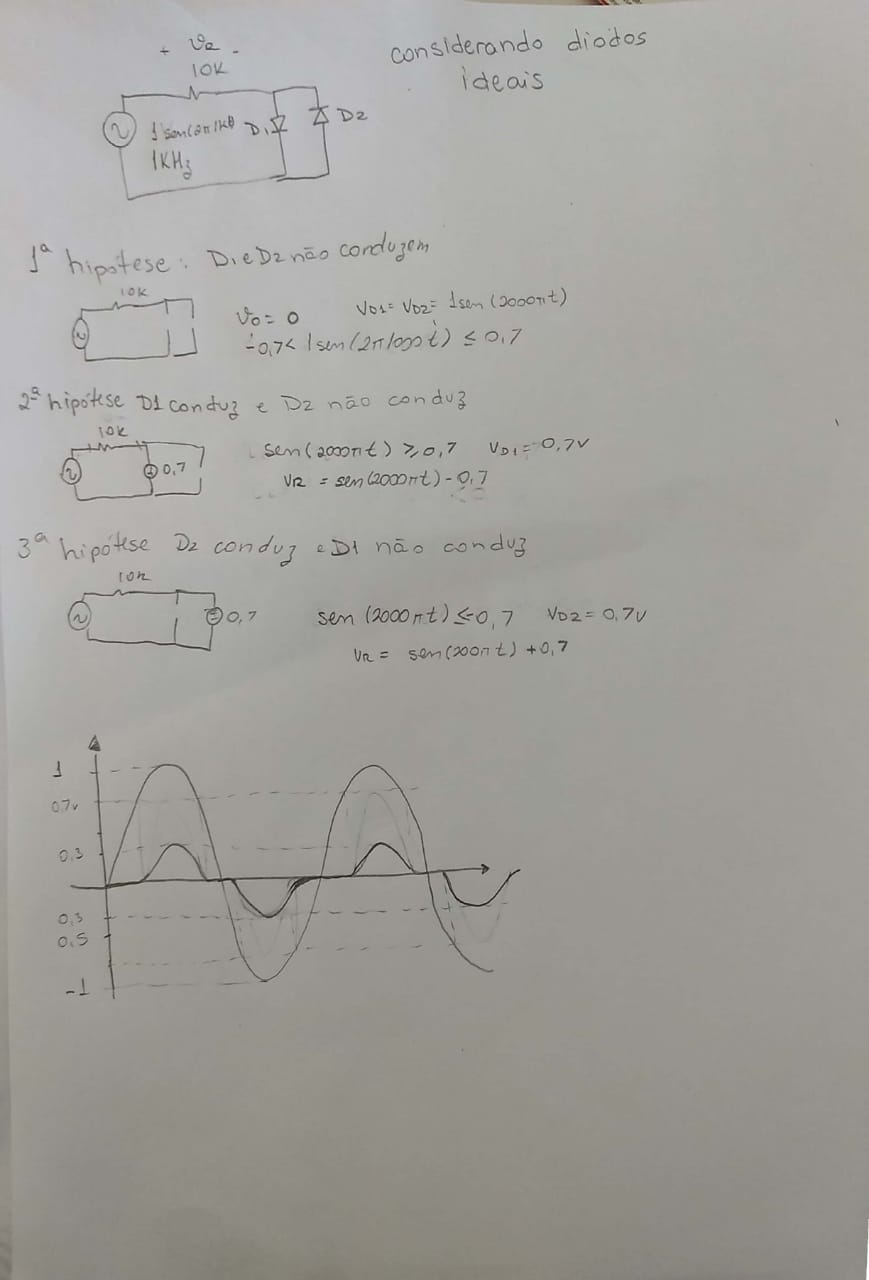 + VR -
10K
considerando diodos
ideais
1 sen(2π1kt)
D1
D2
1KHz
1ª hipótese: D1 e D2 não conduzem
10K
Vo = 0
VD1 = VD2 = 1sen(2000πt)
-0,7 < 1sen(2π1000t) ≤ 0,7
2ª hipótese D1 conduz e D2 não conduz
10K
0,7
sen(2000πt) ≥ 0,7
VD1 = 0,7V
VR = sen(2000πt) - 0,7
3ª hipótese D2 conduz e D1 não conduz
10K
0,7
sen(2000πt) ≤ -0,7
VD2 = 0,7V
VR = sen(200πt) + 0,7
1
0,7v
0,3
0,3
0,5
-1